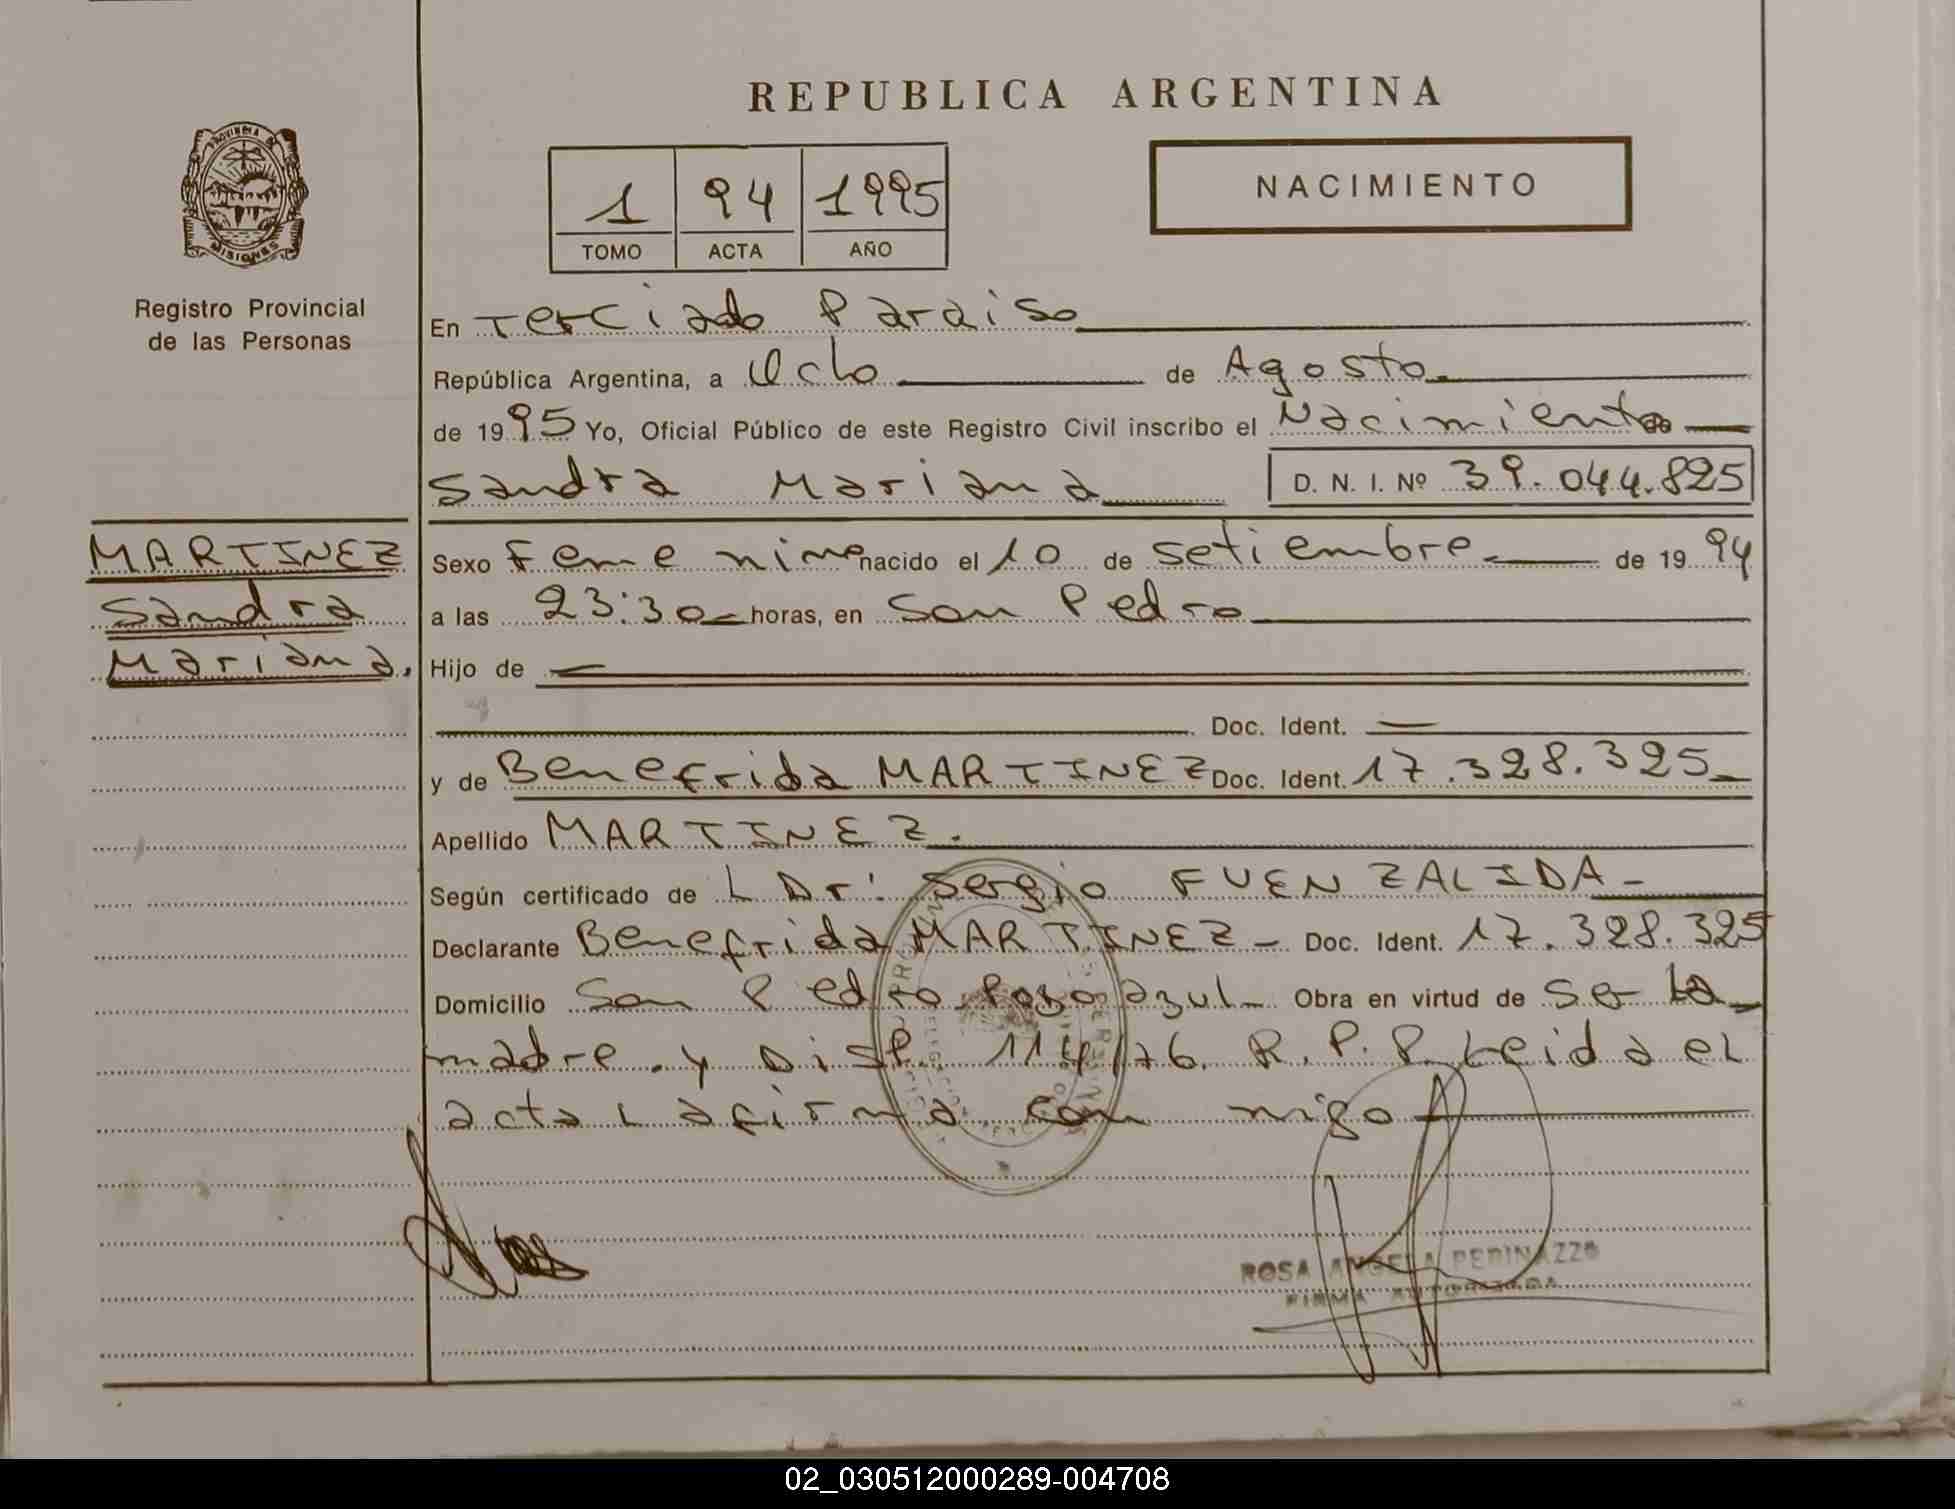 REPUBLICA ARGENTINA
PROVINCIA DE
MISIONES
Registro Provincial
de las Personas
1 94 1995
TOMO ACTA AÑO
NACIMIENTO
En Terciado Paraiso
República Argentina, a Ocho de Agosto
de 1995 Yo, Oficial Público de este Registro Civil inscribo el Nacimiento
Sandra Mariana D. N. I. Nº 39.044.825
MARTINEZ
Sandra
Mariana.
Sexo Femenino nacido el 10 de Setiembre de 1994
a las 23:30 horas, en San Pedro
Hijo de —
Doc. Ident. —
y de Benefrida MARTINEZ Doc. Ident. 17.328.325
Apellido MARTINEZ.
Según certificado de L Dr: Sergio FUENZALIDA-
Declarante Benefrida MARTINEZ- Doc. Ident. 17.328.325
Domicilio San Pedro Pozo azul- Obra en virtud de Ser La
madre. y Disp. 114/76. R.P.P. Leida el
acta La firma con migo
ROSA ANGELA PERINAZZO
FIRMA AUTORIZADA
02_030512000289-004708